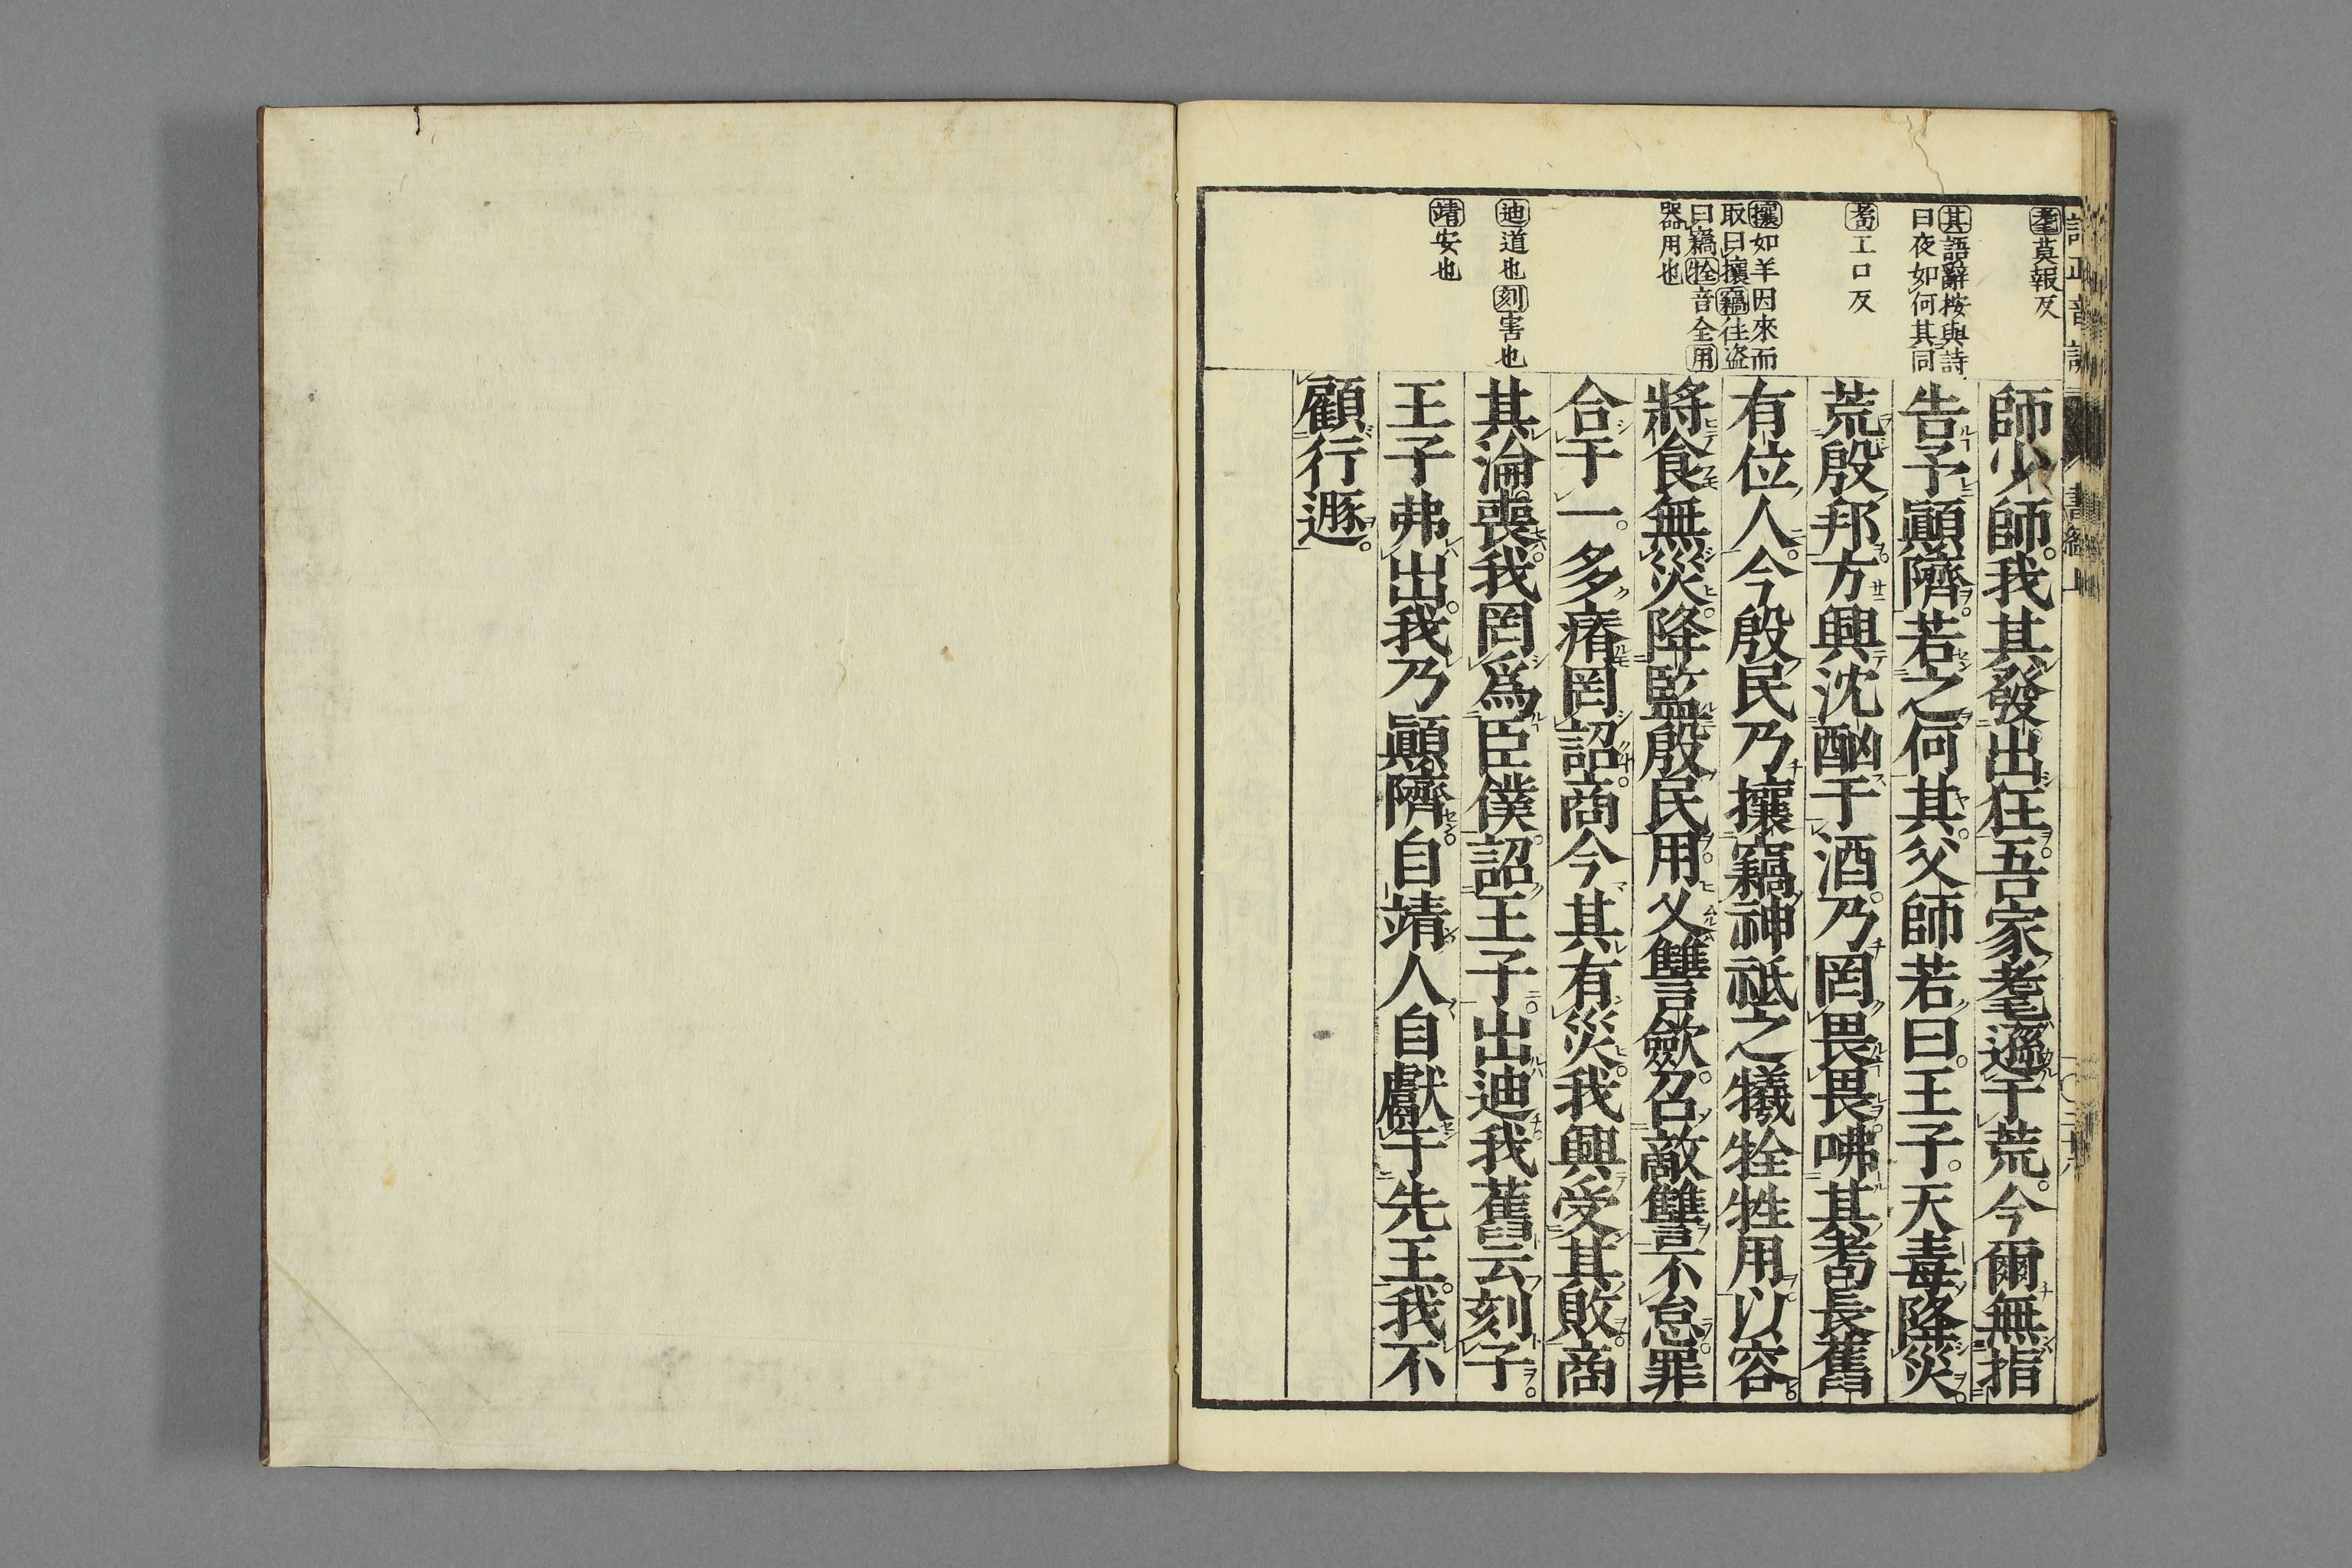 耄莫報反
其語辭按與詩
曰夜如何其同
耇工口反
攘如羊因來而
取曰攘竊往盜
曰竊牷音全用
器用也
迪道也刻害也
靖安也
師少師我其發出狂吾家耄遜于荒今爾無指
告予顚隮若之何其父師若曰王子天毒降災
荒殷邦方興沈酗于酒乃罔畏畏咈其耇長舊
有位人今殷民乃攘竊神祗之犧牷牲用以容
將食無災降監殷民用乂讎斂召敵讎不怠罪
合于一多瘠罔詔商今其有災我興受其敗商
其淪喪我罔爲臣僕詔王子出迪我舊云刻子
王子弗出我乃顚隮自靖人自獻于先王我不
顧行遯